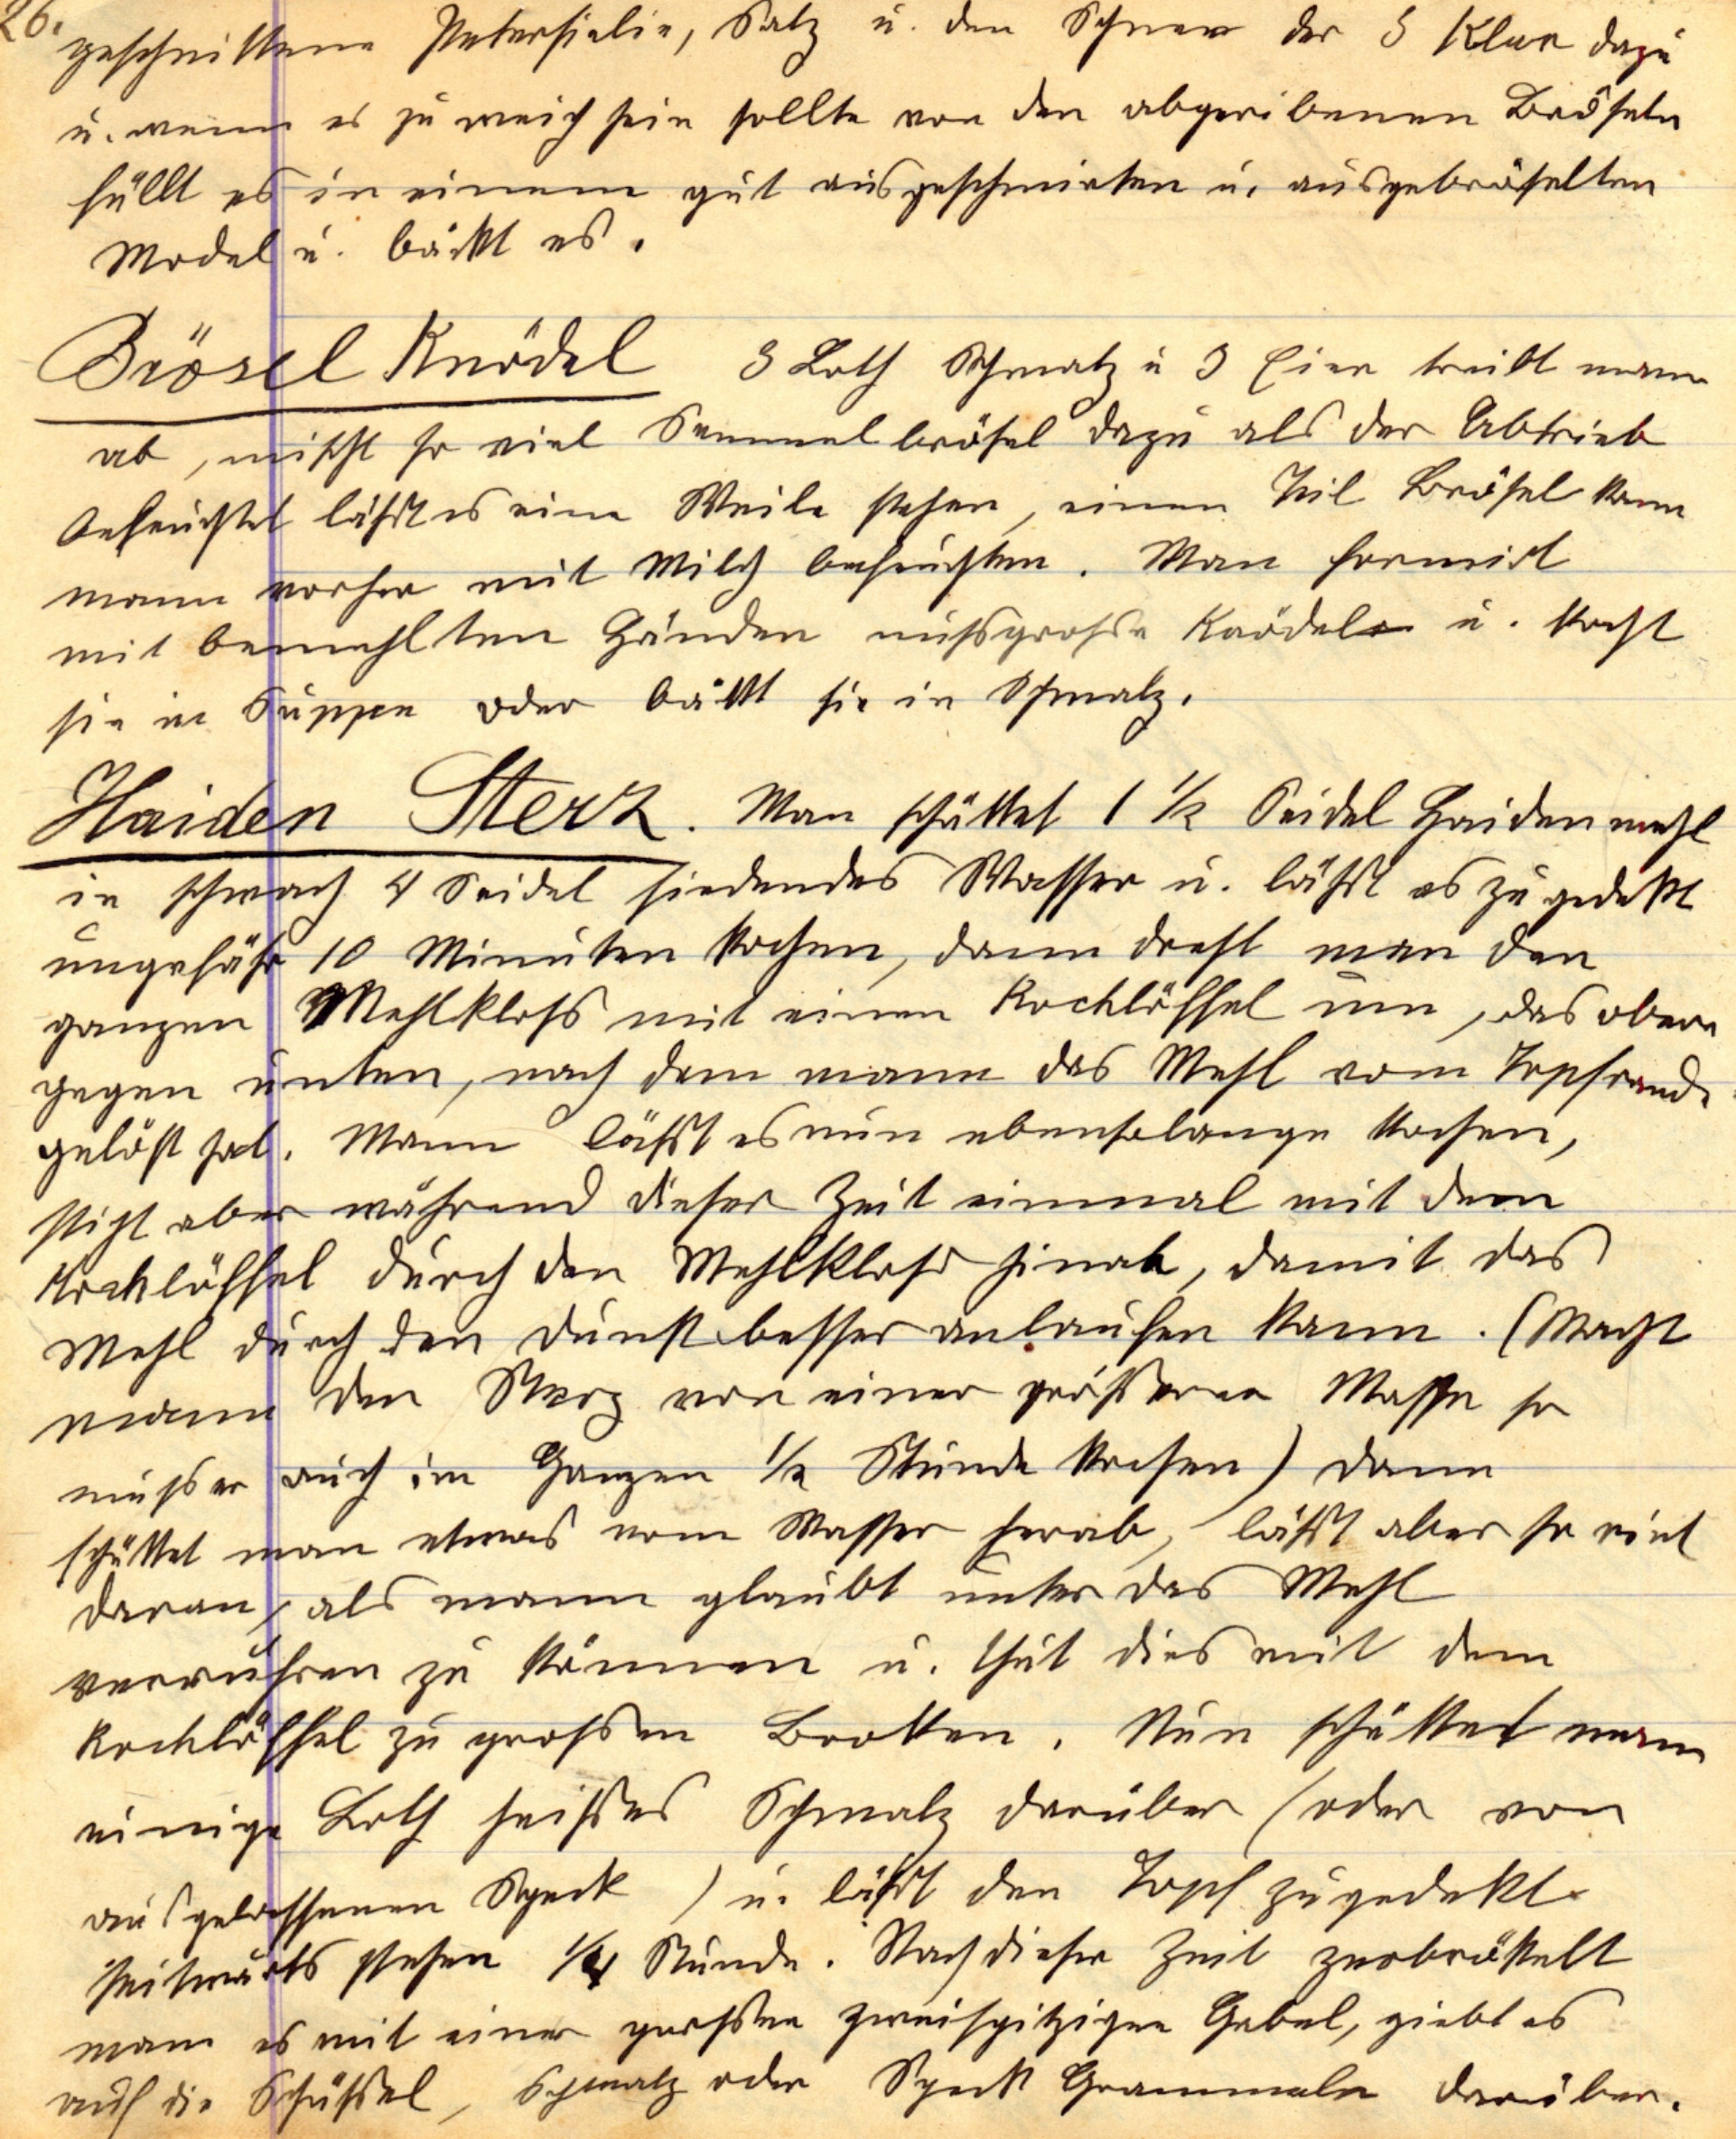 26.
geschnittene Petersielie, Salz u. den Schnee der 3 Klar dazu
u. wenn es zu weich sein sollte von den abgeribenen Bröseln
füllt es in einem gut ausgeschmirten u. ausgebröselten
Model u. bäckt es.
Brösel Knödel 3 Loth Schmalz u 3 Eier treibt mann
ab, mischt so viel Semmelbrösel dazu als der Abtrieb
befeuchtet läßt es eine Weile stehen, einen Teil Brösel kann
mann vorher mit Milch befeuchten. Man formirt
mit bemehlten Händen nußgroße Knödel u. kocht
sie in Suppe oder bäkt sie in Schmalz.
Haiden Sterz. Man schüttet 1 1/2 Seidel Haidenmehl
in schwach 4 Seidel siedendes Wasser u. läßt es zugedekt
ungefähr 10 Minuten kochen, dann dreht man den
ganzen Mehlkloß mit einen Kochlöffel um, das obere
gegen unten, nach dem mann das Mehl vom Topfrande
gelöst hat. Mann läßt es nun ebensolange kochen,
sticht aber während dieser Zeit einmal mit dem
Kochlöffel durch den Mehlkloß hinab, damit das
Mehl durch den Dunst besser anlaufen kann. (Macht
mann den Sterz von einer größeren Masse so
muß er auch im Ganzen 1/2 Stunde kochen) dann
schüttet man etwas vom Wasser herab, läßt aber so viel
daran, als mann glaubt unter das Mehl
verruhren zu können u. thut dies mit dem
Kochlöffel zu großen Brocken. Nun schüttet mann
einige Loth heißes Schmalz darüber (oder von
ausgelassenen Speck) u. läßt den Topf zugedekt
seitwärts stehen 1/4 Stunde. Nach dieser Zeit zerbröckelt
mann es mit einer großen zweispitzigen Gabel, giebt es
auf die Schüßel, Schmalz oder Speck Grammeln darüber.